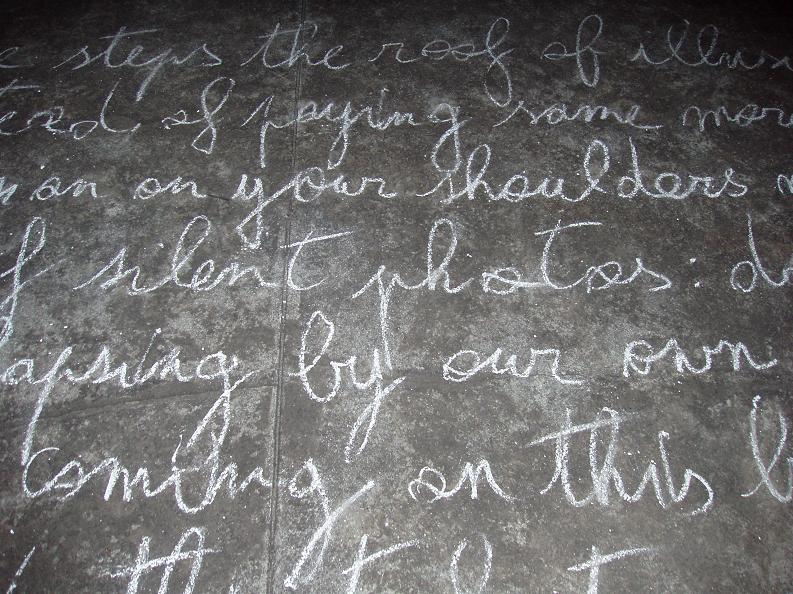 e steps the roof of illusi
tead of paying some more
man on your shoulders
of silent photos : do
apsing by our own
coming on this b